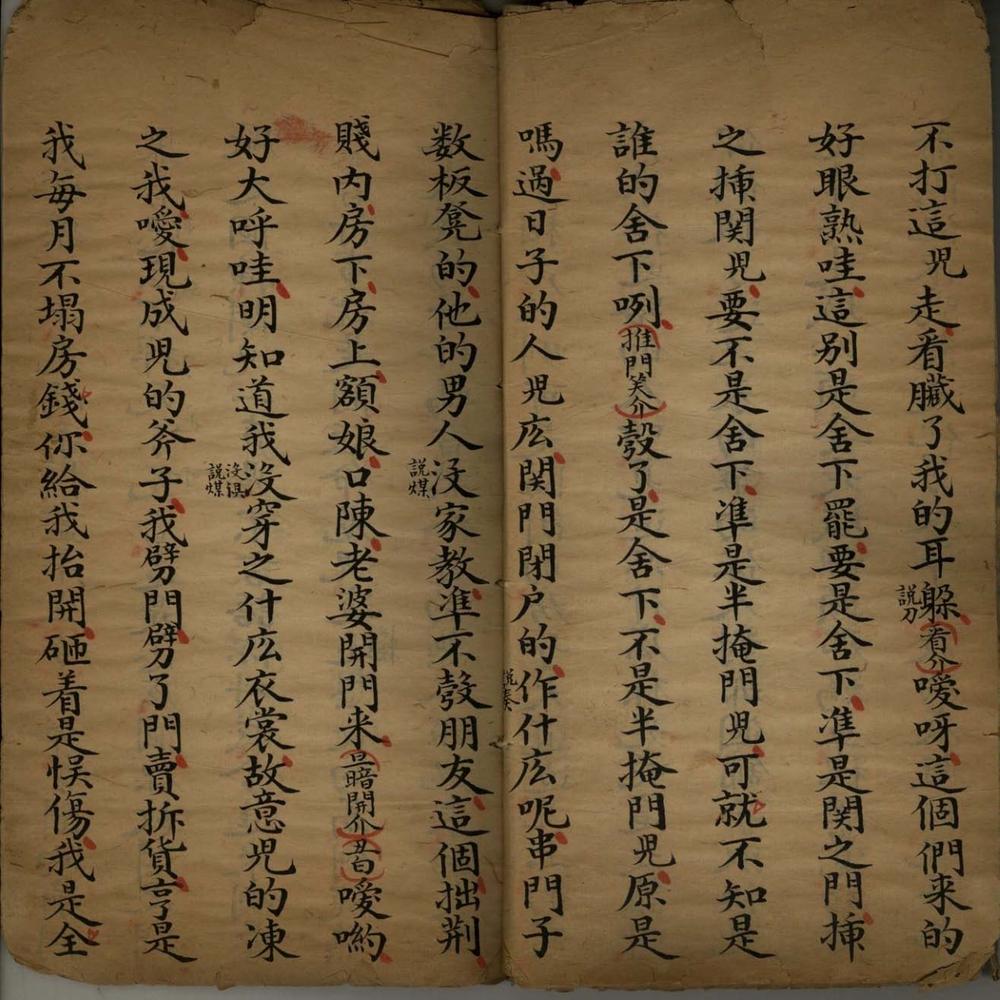 不打這児走看臟了我的耳躲説刀看介噯呀這個們来的
好眼熟哇這别是舍下罷要是舍下凖是関之門揷
之揷関児要不是舍下凖是半掩門児可就不知是
誰的舍下咧推門笑介彀了是舍下不是半掩門児原是
嗎過日子的人児庅関門閉户的説奏作什庅呢串門子
数板凳的他的男人説煤没家教凖不彀朋友這個拙荆
賤内房下房上額娘口陳老婆開門来旦暗開介丑白噯喲
好大呼哇明知道我没穿之什庅衣裳故意児的凍
之我噯現成児的斧子我劈門劈了門賣拆貨亨是
我每月不塌房錢你給我抬開砸着是悮傷我是全